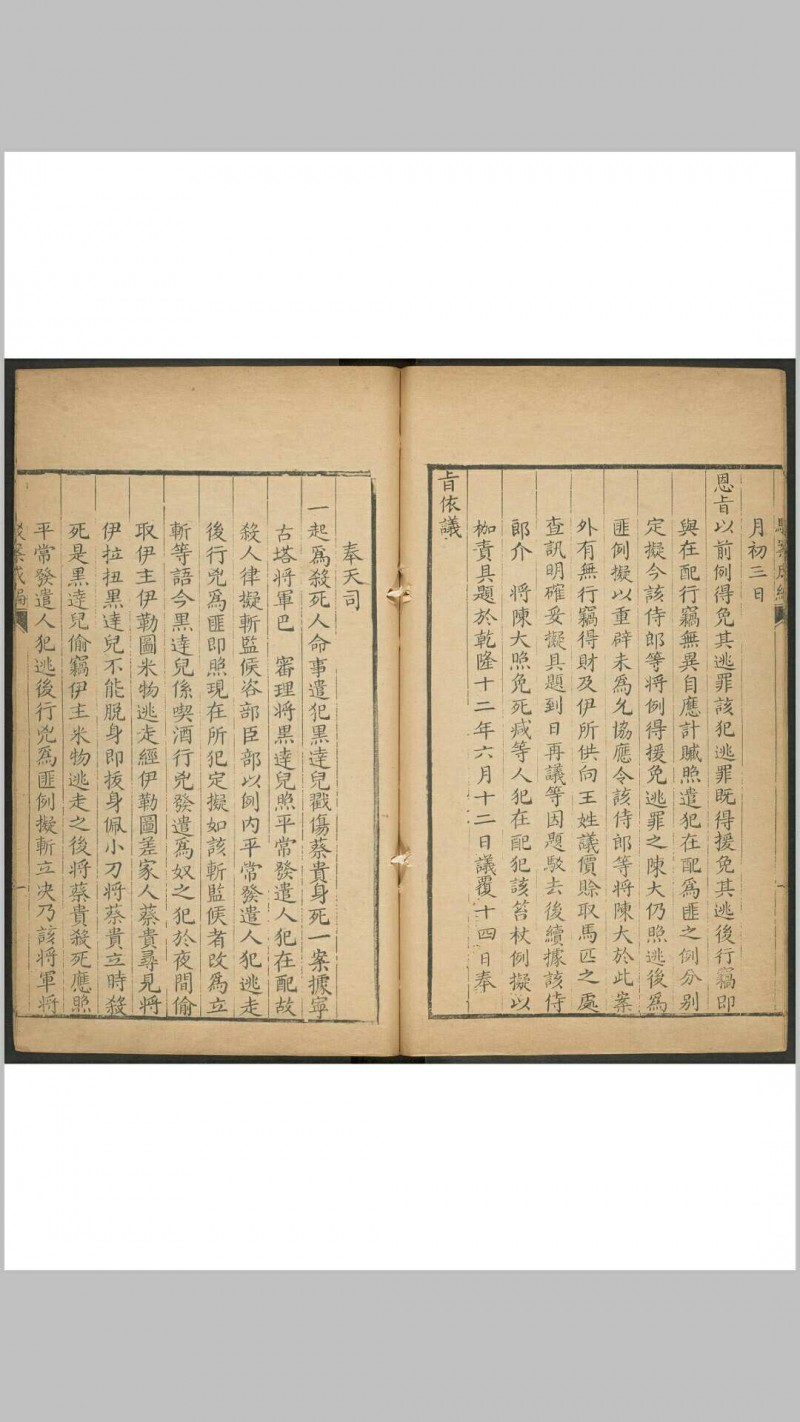 月初三日
恩旨以前例得免其逃罪該犯逃罪既得援免其逃後行竊即
與在配行竊無異自應計贓照遣犯在配為匪之例分别
定擬今該侍郎等將例得援免逃罪之陳大仍照逃後為
匪例擬以重辟未為允協應令該侍郎等將陳大於此案
外有無行竊得財及伊所供向王姓議價賒取馬匹之處
查訊明確妥擬具題到日再議等因題駁去後續據該侍
郎介 將陳大照免死減等人犯在配犯該笞杖例擬以
枷責具題於乾隆十二年六月十二日議覆十四日奉
旨依議
奉天司
一起為殺死人命事遣犯黑達兒戳傷蔡貴身死一案據寧
古塔將軍巴 審理將黑達兒照平常發遣人犯在配故
殺人律擬斬監候咨部臣部以例內平常發遣人犯逃走
後行兇為匪即照現在所犯定擬如該斬監候者改為立
斬等語今黑達兒係喫酒行兇發遣為奴之犯於夜間偷
取伊主伊勒圖米物逃走經伊勒圖差家人蔡貴尋見將
伊拉扭黑達兒不能脫身即拔身佩小刀將蔡貴立時殺
死是黑達兒偷竊伊主米物逃走之後將蔡貴殺死應照
平常發遣人犯逃後行兇為匪例擬斬立决乃該將軍將